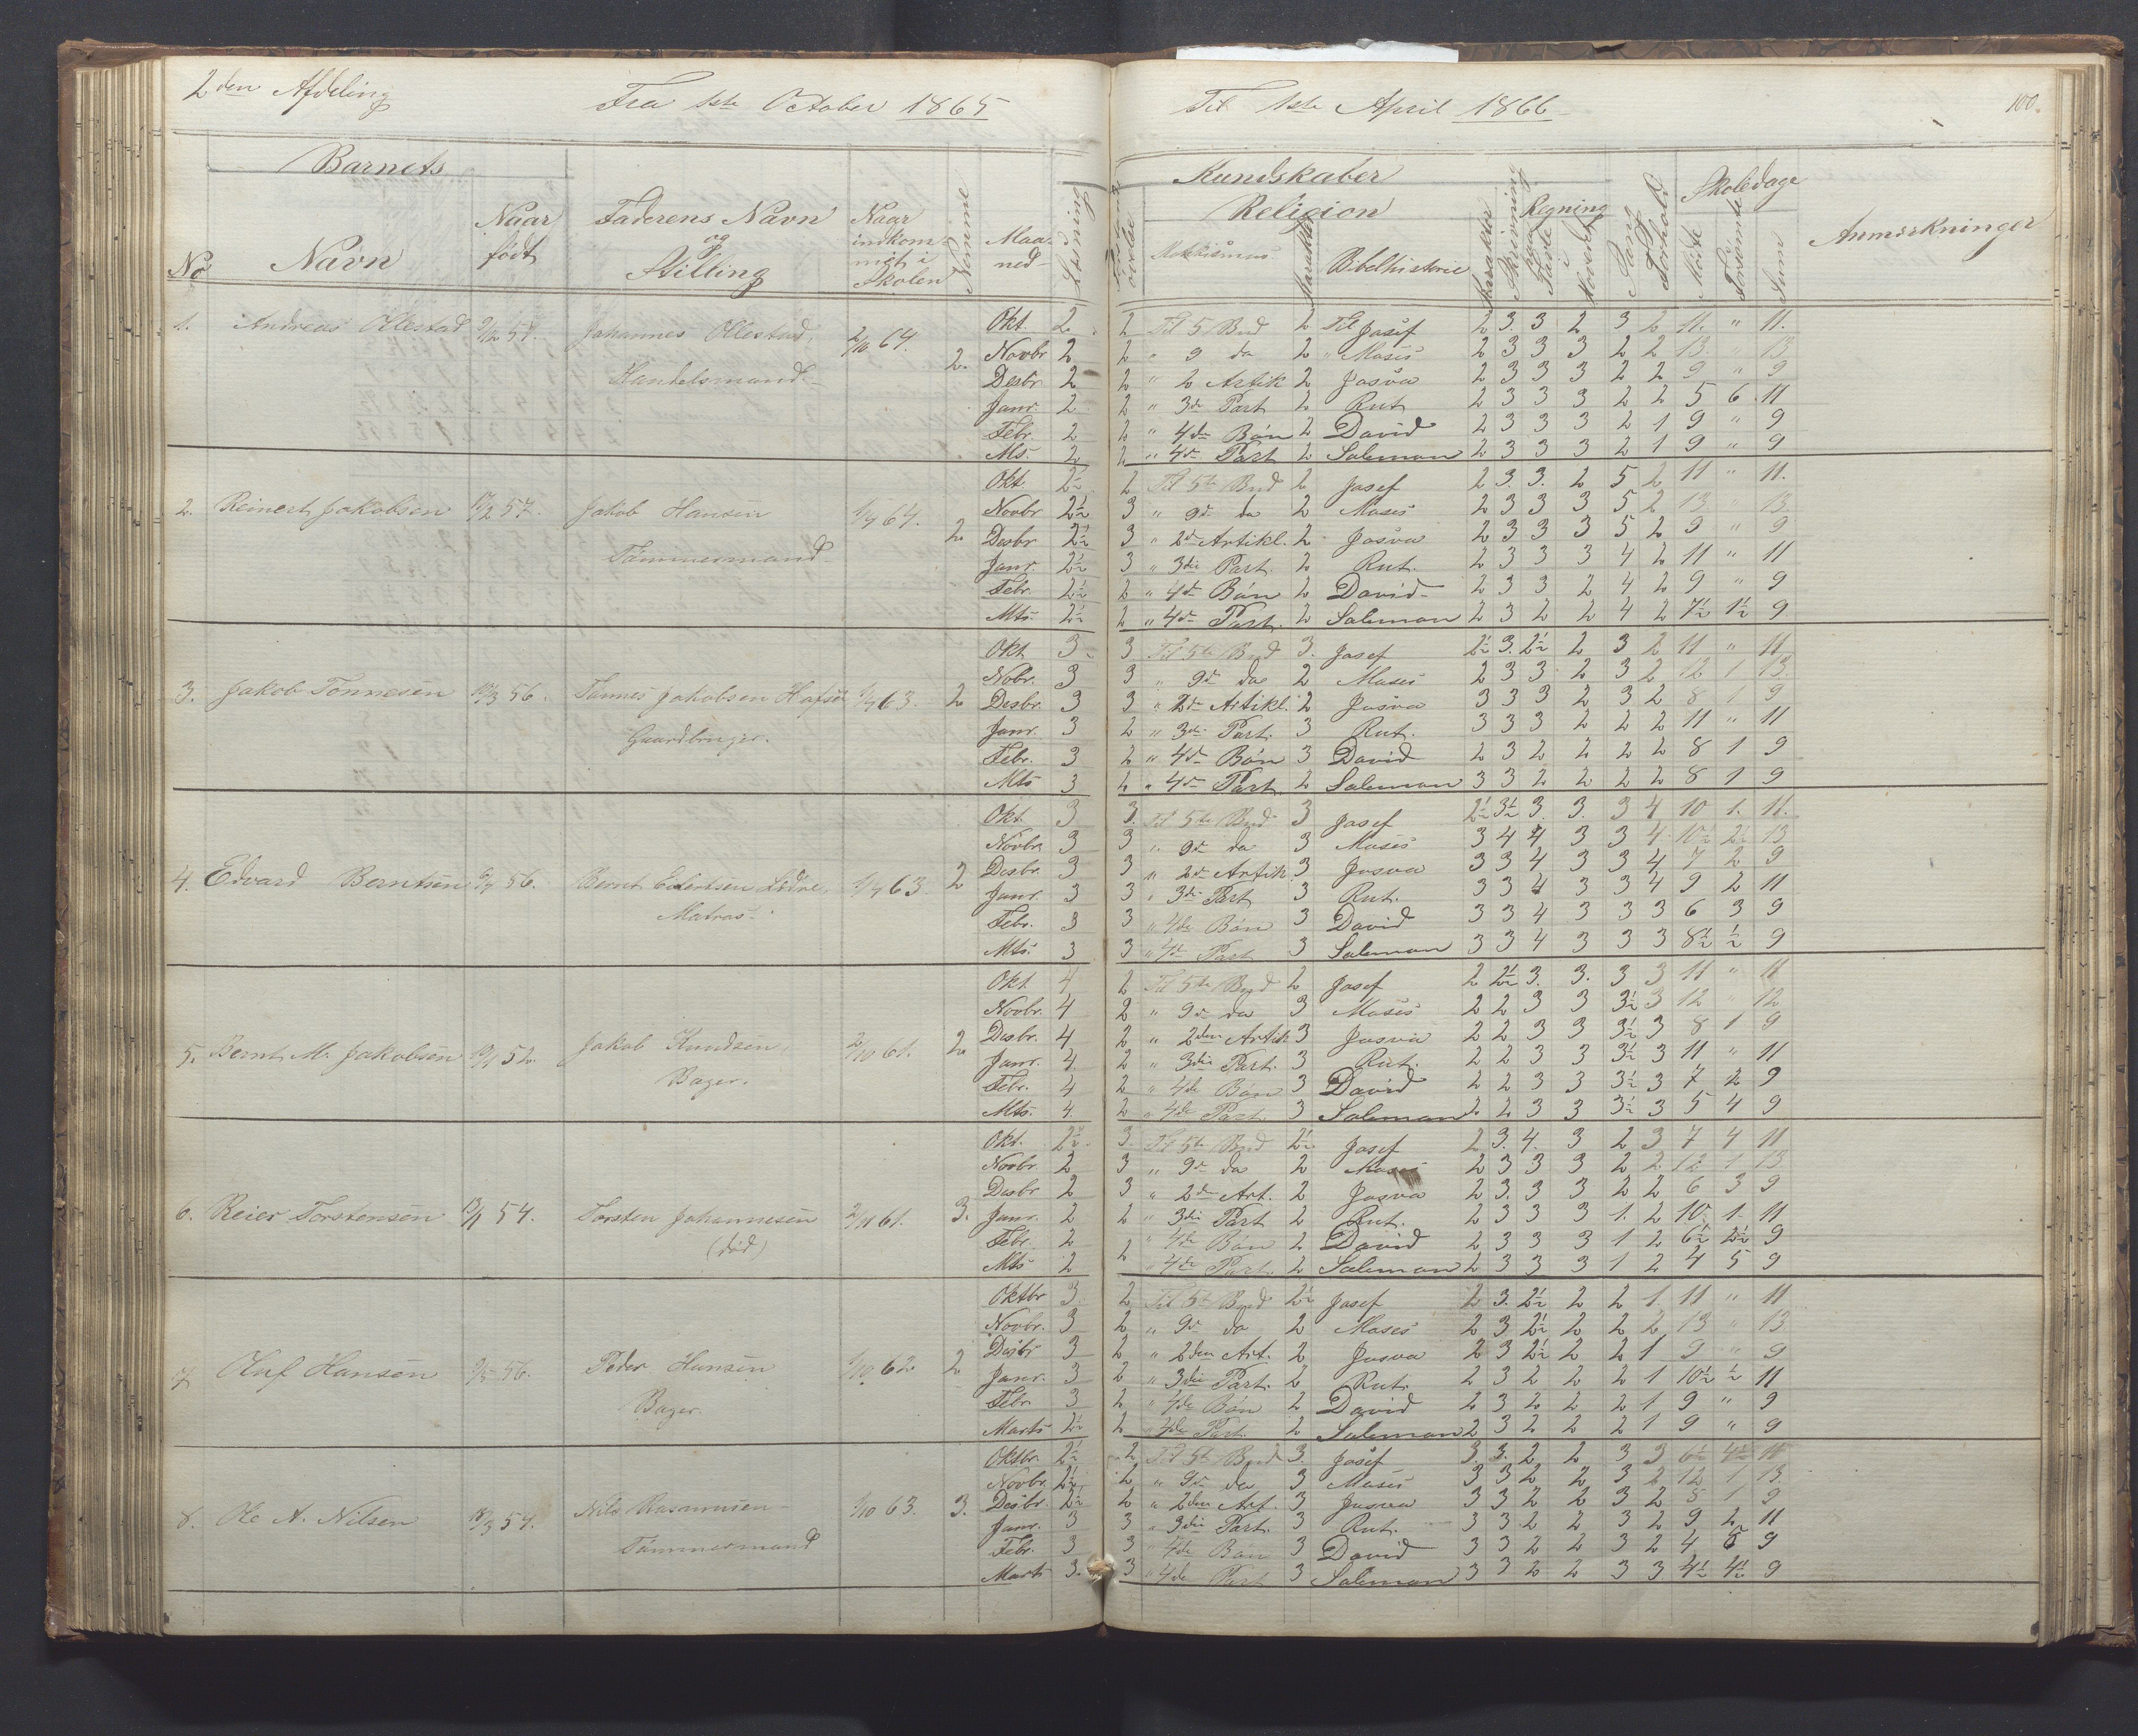 2den Afdeling
Fra 1ste October 1865
Til 1ste April 1866
100.
Barnets
No
Navn
Naar født
Faderens Navn og Stilling
Naar indkommet i Skolen
Nemme
Maaned
Læsning
Kundskaber
Religion
Bibelhistorie
Karakter
Skrivning
Regning
Tavle
i Hovedet
Sang
Forhold
Skoledage
Mødte
Forsømte
Sum
Anmærkninger
1. Andreas Ollestad Johannes Ollestad, Handelsmand 2/10 64. 2.
Okt. 2 2 Til 5 Bud 2 Til Josef 2 3. 3 2 3 2 11. " 11.
Novbr 2 2 " 9 da 2 " Moses 2 3 3 3 2 2 13. " 13
Desbr. 2 2 " 2 Artik 2 Josva 2 3 3 3 2 2 9 " 9
Janr. 2 2 " 3de Part 2 Rut 2 3 3 3 2 2 5 6 11
Febr. 2 2 " 4de Bøn 2 David 2 3 3 3 2 1 9 " 9
Mts. 2 2 " 4de Part 2 Salemon 2 3 3 3 2 1 9 " 9
2. Reinert Jakobsen 57. Jakob Hansen Tømmermand 64. 2
Okt 2½ 2 Til 5te Bud 2 Josef 2 3. 3. 2 5 2 11 " 11.
Novbr 2½ 3 " 9de da 2 Moses 2 3 3 3 5 2 13 " 13.
Desbr 2½ 3 " 2de Artikl. 2 Josva 2 3 3 3 5 2 9 " 9
Janr. 2½ 3 " 3die Part. 2 Rut. 2 3 3 3 4 2 11 " 11
Febr. 2½ 2 " 4de Bøn 2 David 2 3 3 2 4 2 9 " 9
Mts. 2½ 2 " 4de Part. 2 Salemon 2 3 2 2 4 2 7½ 1½ 9.
3. Jakob Tønnesen 56. Tønnes Jakobsen Gaardbruger. 63. 2
Okt 3 3 Til 5te Bud 3. Josef 2½ 3. 2½ 2 3 2 11 " 11
Nobr. 3 3 " 9de da 2 Moses 2 3 3 2 3 2 12 1 13.
Desbr. 3 3 " 2de Artikl. 2 Josva 3 3 3 2 3 2 8 1 9
Janr. 3 2 " 3die Part. 3 Rut. 3 3 3 2 2 2 11 " 11
Febr. 3 2 " 4de Bøn 3 David 2 3 2 2 2 2 8 1 9
Mts 3 2 " 4de Part. 2 Salemon 3 3 2 2 2 2 8 1 9
4. Edvard Berntsen 56. Bernt Matros. 63. 2
Okt. 3 3. Til 5te Bud 3 Josef 2½ 3½ 3. 3. 3 4 10 1. 11.
Novbr. 3 3 " 9de da 3 Moses 3 4 4 3 3 4 10½ 2½ 13
Desbr. 3 3 " 2de Artik. 3 Josva 3 3 4 3 3 4 7 2 9
Janr. 3 3 " 3die Part 3 Rut. 3 3 4 3 3 4 9 2 11
Febr. 3 3 " 4de Bøn 3 David 3 3 4 3 3 3 6 3 9
Mts. 3 3 " 4de Part 3 Salemon 3 3 4 3 3 3 8½ ½ 9
5. Bernt M. Jakobsen 52. Jakob Knudsen, Bager. 2/10 61. 2.
Okt 4 2 Til 5te Bud 2 Josef 2 2½ 3. 3. 3 3 11 " 11
Novbr. 4 2 " 9de da 3 Moses 2 2 3 3 3½ 3 12 " 12
Desbr. 4 2 " 2den Artik 3 Josva 2 2 3 3 3½ 3 8 1 9
Janr. 4. 2 " 3die Part. 3 Rut. 2 2 3 3 3½ 3 11 " 11
Febr. 4 2 " 4de Bøn 3 David 2 2 3 3 3½ 3 7 2 9
Mts. 4. 2 " 4de Part. 3 Salemon 2 2 3 3 3½ 3 5 4 9
6. Reier Torstensen 54. Torsten Johannesen (død) 61. 3.
Okt. 2½ 3. Til 5te Bud 2½ Josef 2 3. 4. 3 2 3 7 4 11
Novbr. 2 3 " 9de da 2 Moses 2 3 3 3 2 2 12 1 13
Desbr 2 3 " 2de Art. 2 Josva 2 3. 3 3 2 2 6 3 9
Janr. 2 2 " 3die Part 2 Rut. 2 3 3 3 1. 2 10. 1. 11
Febr. 2 " 4de Bøn 2 David 2 3 3 3 1 2 6½ 2½ 9
Mts 2 2 " 4de Part. 2 Salemon 2 3 3 3 1 2 4 5 9
7. Oluf Hansen 56. Peder Hansen Bager. 1/10 62. 2
Oktbr 3. 2 Til 5te Bud 2½ Josef 2 3. 2½ 2 2 1. 11 " 11
Novbr. 3 2 " 9de da 2 Moses 2 3 2½ 2 2 2 13 " 13
Desbr 3 2 " 2den Art 2 Josva 2 3 2½ 2 2 1 9 " 9
Janr. 3 2 " 3die Part. 2 Rut. 2 3 2 2 2 1 10½ ½ 11
Febr. 3 2 " 4de Bøn 2 David 2 3 2 2 2 1 9 " 9
Marts 2½ 2 " 4de Part. 2 Salemon 2 3 2 2 2 1 9 " 9
8. Ole A. Nilsen Nils Rasmussen Tømmermand 1/10 63. 3.
Oktbr. 2½ 2 Til 5te Bud 3. Josef 3. 3. 2 2 3 3 6½ 4½ 11
Novbr. 2½ 2 " 9de da 3 Moses 3 3 2 2 3 2 12 1 13.
Desbr. 2½ 2 " 2den Art. 3 Josva 3 3 2 2 3 2 8 1 9
Janr. 3 3 " 3die Part. 3 Rut. 3 3. 2 2 3 2 9 2 11
Febr. 3 3 " 4de Bøn 3 David 3 3 2 2 3 2 4 5 9
Marts 3. 3 " 4de Part 3 Salemon 3 3 2 2 3 3 4½ 4½ 9